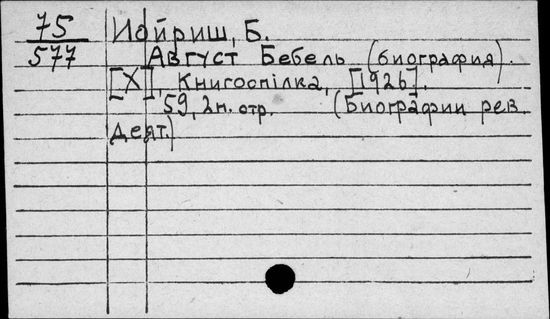 75 Иойриш, Б.
577 Август Бебель (биография).
[Х], Книгоспілка, [1926].
59, 2н. стр. (Биографии рев.
деят.)